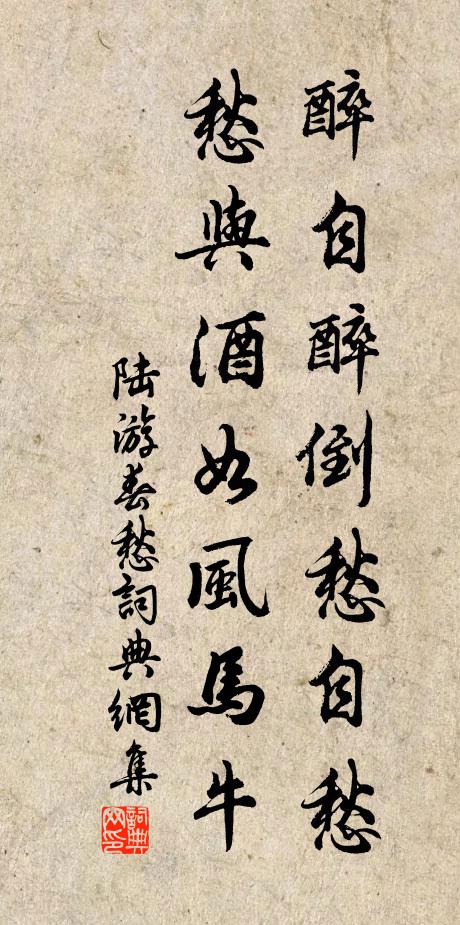 醉自醉倒愁自愁
愁與酒如風馬牛
陸游春愁詞典網集
詞典網印